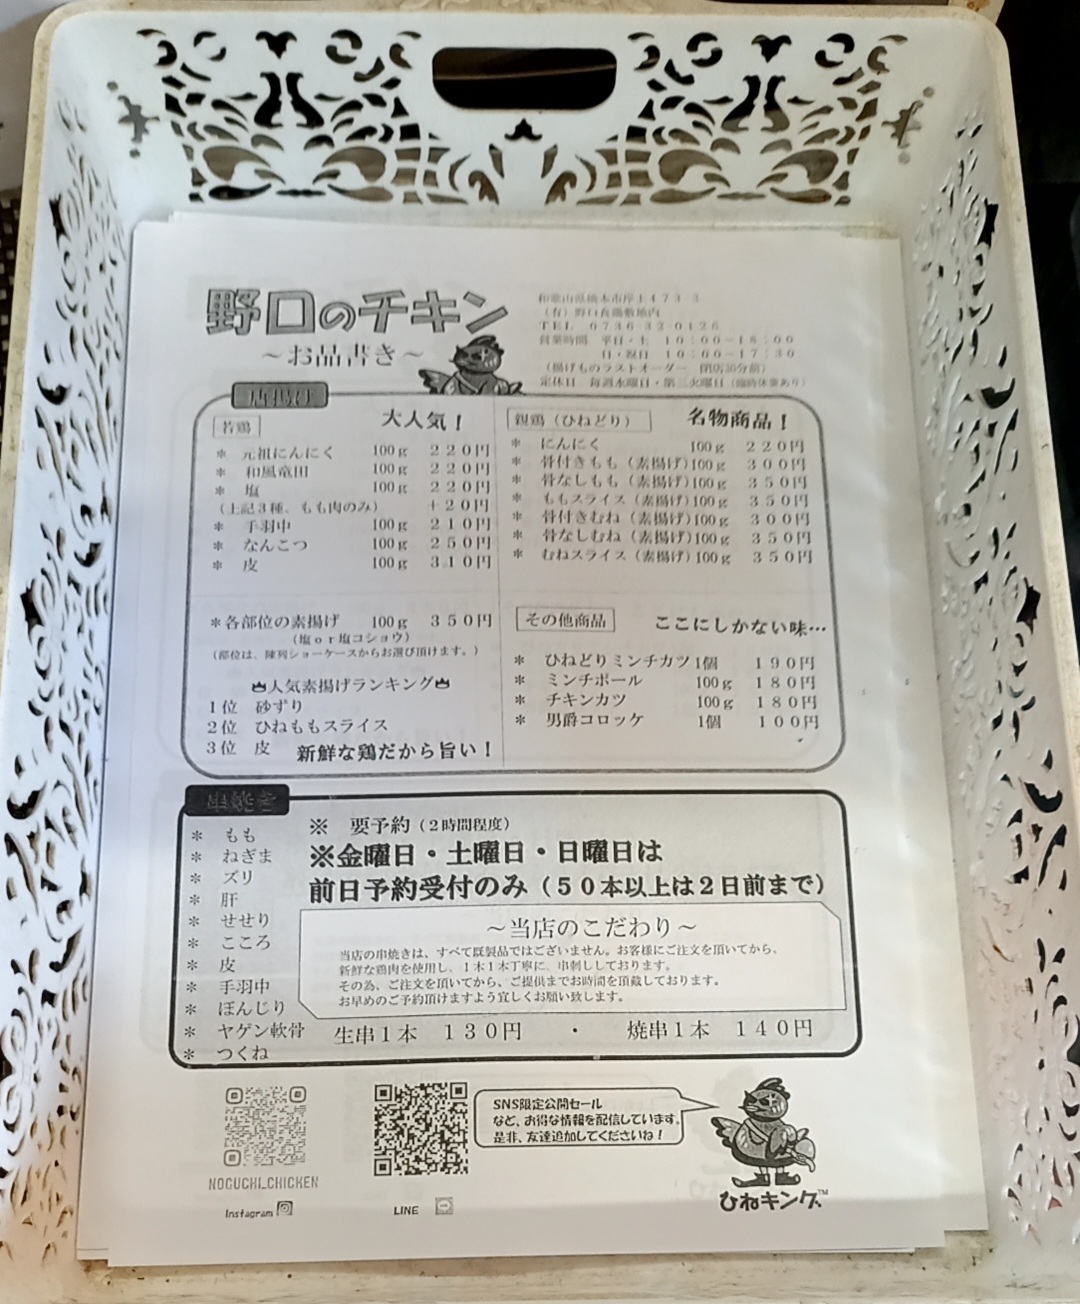 野口のチキン
～お品書き～
和歌山県橋本市岸上473-3
(有)野口食鶏敷地内
TEL 0736-32-0126
営業時間 平日・土 10:00－18:00
日・祝日 10:00－17:30
(揚げものラストオーダー 閉店30分前)
定休日 毎週水曜日・第三火曜日(臨時休業あり)
若鶏 大人気！
＊ 元祖にんにく 100g 220円
＊ 和風竜田 100g 220円
＊ 塩 100g 220円
(上記3種、もも肉のみ) +20円
＊ 手羽中 100g 210円
＊ なんこつ 100g 250円
＊ 皮 100g 310円
＊各部位の素揚げ 100g 350円
(塩or塩コショウ)
(部位は、陳列ショーケースからお選び頂けます。)
人気素揚げランキング
1位 砂ずり
2位 ひねももスライス
3位 皮 新鮮な鶏だから旨い！
親鶏(ひねどり) 名物商品！
＊ にんにく 100g 220円
＊ 骨付きもも(素揚げ)100g 300円
＊ 骨なしもも(素揚げ)100g 350円
＊ ももスライス(素揚げ)100g 350円
＊ 骨付きむね(素揚げ)100g 300円
＊ 骨なしむね(素揚げ)100g 350円
＊ むねスライス(素揚げ)100g 350円
その他商品 ここにしかない味…
＊ ひねどりミンチカツ1個 190円
＊ ミンチボール 100g 180円
＊ チキンカツ 100g 180円
＊ 男爵コロッケ 1個 100円
串焼き
＊ もも
＊ ねぎま
＊ ズリ
＊ 肝
＊ せせり
＊ こころ
＊ 皮
＊ 手羽中
＊ ぼんじり
＊ ヤゲン軟骨
＊ つくね
※ 要予約(2時間程度)
※金曜日・土曜日・日曜日は
前日予約受付のみ(50本以上は2日前まで)
～当店のこだわり～
当店の串焼きは、すべて既製品ではございません。お客様にご注文を頂いてから、
新鮮な鶏肉を使用し、1本1本丁寧に、串刺ししております。
その為、ご注文を頂いてから、ご提供までお時間を頂戴しております。
お早めのご予約頂けますよう宜しくお願い致します。
生串1本 130円 ・ 焼串1本 140円
NOGUCHI_CHICKEN
Instagram
LINE
SNS限定公開セール
など、お得な情報を配信しています。
是非、友達追加してくださいね！
ひねキング™